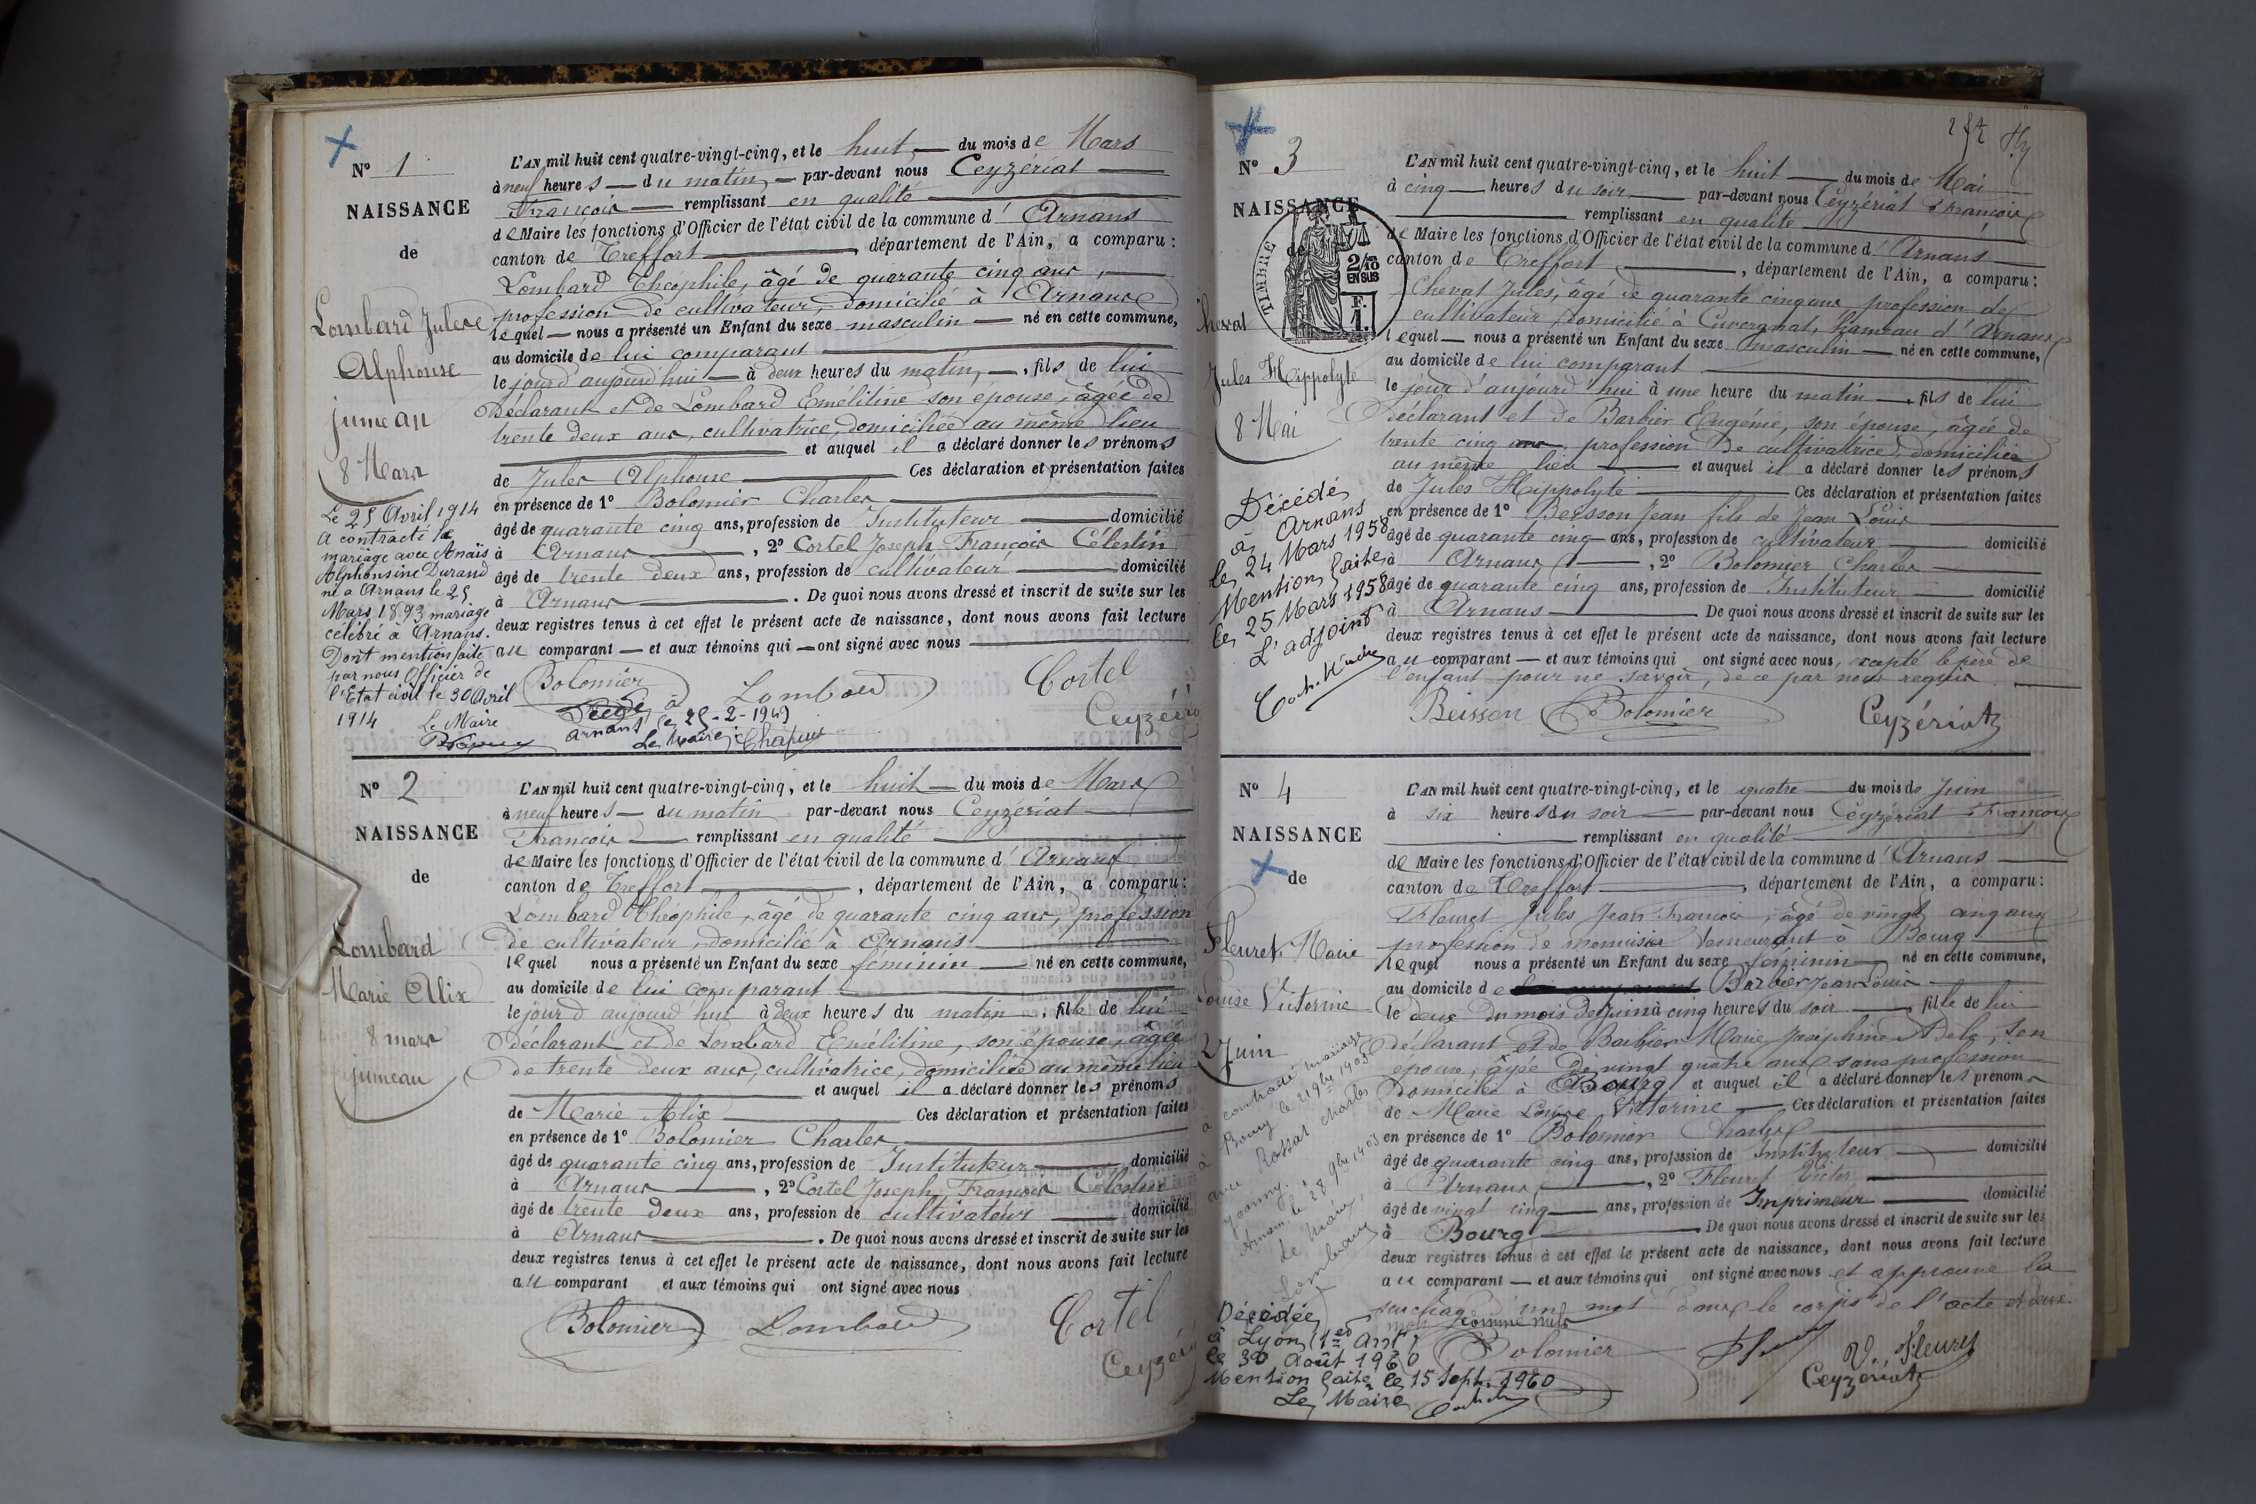 Nº 1
NAISSANCE
de
Lombard Jules
Alphonse
jumeau
8 Mars
Le 25 Avril 1914
a contracté
mariage avec Anaïs
Alphonsine Durand
né a Arnans le 25
Mars 1893 mariage
célébré à Arnans.
Dont mention faite
par nous Officier de
l'Etat civil le 30 Avril
1914
Le Maire
L'AN mil huit cent quatre-vingt-cinq, et le huit du mois de Mars
à neuf heures du matin, par-devant nous Ceyzériat
François remplissant en qualité
de Maire les fonctions d'Officier de l'état civil de la commune d'Arnans
canton de Treffort, département de l'Ain, a comparu :
Lombard Théophile, âgé de quarante cinq ans,
profession de cultivateur, domicilié à Arnans
lequel nous a présenté un Enfant du sexe masculin né en cette commune,
au domicile de lui comparant
le jour d'aujourd'hui à deux heures du matin, fils de lui
Déclarant et de Lombard Emélitine son épouse, âgée de
trente deux ans, cultivatrice, domiciliée au même lieu
et auquel il a déclaré donner les prénoms
de Jules Alphonse Ces déclaration et présentation faites
en présence de 1º Bolomier Charles
âgé de quarante cinq ans, profession de Instituteur domicilié
à Arnans, 2º Cortel Joseph François Célestin
âgé de trente deux ans, profession de cultivateur domicilié
à Arnans. De quoi nous avons dressé et inscrit de suite sur les
deux registres tenus à cet effet le présent acte de naissance, dont nous avons fait lecture
au comparant et aux témoins qui ont signé avec nous
Bolomier Lombard Cortel
Décédé à
Arnans le 25-2-1949
Le Maire: Chapuis
Nº 2
NAISSANCE
de
Lombard
Marie Alix
8 mars
jumeau
L'AN mil huit cent quatre-vingt-cinq, et le huit du mois de Mars
à neuf heures du matin par-devant nous Ceyzériat
François remplissant en qualité
de Maire les fonctions d'Officier de l'état civil de la commune d'Arnans
canton de Treffort, département de l'Ain, a comparu :
Lombard Théophile, âgé de quarante cinq ans, profession
de cultivateur, domicilié à Arnans
lequel nous a présenté un Enfant du sexe féminin né en cette commune,
au domicile de lui comparant
le jour d'aujourd'hui à deux heures du matin, fille de lui
déclarant et de Lombard Emélitine, son épouse, âgée
de trente deux ans, cultivatrice, domiciliée au même lieu
et auquel il a déclaré donner les prénoms
de Marie Alix Ces déclaration et présentation faites
en présence de 1º Bolomier Charles
âgé de quarante cinq ans, profession de Instituteur domicilié
à Arnans, 2º Cortel Joseph François Célestin
âgé de trente deux ans, profession de cultivateur domicilié
à Arnans. De quoi nous avons dressé et inscrit de suite sur les
deux registres tenus à cet effet le présent acte de naissance, dont nous avons fait lecture
au comparant et aux témoins qui ont signé avec nous
Bolomier Lombard Cortel
Nº 3
NAISSANCE
de
TIMBRE
2/10
EN SUS
F.
1.
Cheval
Jules Hippolyte
8 Mai
Décédé
à Arnans
le 24 Mars 1958
Mention faite
le 25 Mars 1958
L'adjoint
L'AN mil huit cent quatre-vingt-cinq, et le huit du mois de Mai
à cinq heures du soir par-devant nous Ceyzériat François
remplissant en qualité
de Maire les fonctions d'Officier de l'état civil de la commune d'Arnans
canton de Treffort, département de l'Ain, a comparu :
Cheval Jules, âgé de quarante cinq ans profession de
cultivateur, domicilié à Cuvergnat, hameau d'Arnans
lequel nous a présenté un Enfant du sexe masculin né en cette commune,
au domicile de lui comparant
le jour d'aujourd'hui à une heure du matin, fils de lui
déclarant et de Barbier Eugénie, son épouse, âgée de
trente cinq ans, profession de cultivatrice, domiciliée
au même lieu et auquel il a déclaré donner les prénoms
de Jules Hippolyte Ces déclaration et présentation faites
en présence de 1º Beisson Jean fils de Jean Louis
âgé de quarante cinq ans, profession de cultivateur domicilié
à Arnans, 2º Bolomier Charles
âgé de quarante cinq ans, profession de Instituteur domicilié
à Arnans De quoi nous avons dressé et inscrit de suite sur les
deux registres tenus à cet effet le présent acte de naissance, dont nous avons fait lecture
au comparant et aux témoins qui ont signé avec nous, excepté le père de
l'enfant pour ne savoir, de ce par nous requis
Beisson Bolomier Ceyzériat
Nº 4
NAISSANCE
de
Fleuret Marie
Louise Victorine
2 Juin
contracté mariage
à Bourg le 21 9bre 1903
avec Rossat Charles
Arnans le 28 9bre 1903
Le Maire,
Lombard
Décédée
à Lyon (1er Arrt)
le 30 Août 1960
Mention faite le 15 Sept. 1960
Le Maire
L'AN mil huit cent quatre-vingt-cinq, et le quatre du mois de Juin
à six heures du soir par-devant nous Ceyzériat François
remplissant en qualité
de Maire les fonctions d'Officier de l'état civil de la commune d'Arnans
canton de Treffort, département de l'Ain, a comparu :
Fleuret Jules Jean François, âgé de vingt cinq ans
profession de menuisier demeurant à Bourg
lequel nous a présenté un Enfant du sexe féminin né en cette commune,
au domicile de Barbier Jean Louis
le deux du mois de Juin à cinq heures du soir, fille de lui
déclarant et de Barbier Marie Joséphine Adèle, son
épouse, âgée de vingt quatre ans sans profession
domiciliée à Bourg et auquel il a déclaré donner les prénoms
de Marie Louise Victorine Ces déclaration et présentation faites
en présence de 1º Bolomier Charles
âgé de quarante cinq ans, profession de Instituteur domicilié
à Arnans, 2º Fleuret Victor
âgé de vingt cinq ans, profession de Imprimeur domicilié
à Bourg De quoi nous avons dressé et inscrit de suite sur les
deux registres tenus à cet effet le présent acte de naissance, dont nous avons fait lecture
au comparant et aux témoins qui ont signé avec nous et approuvé la
surchage d'un mot dans le corps de l'acte et deux
mots comme nuls
Bolomier V. Fleuret
Ceyzériat